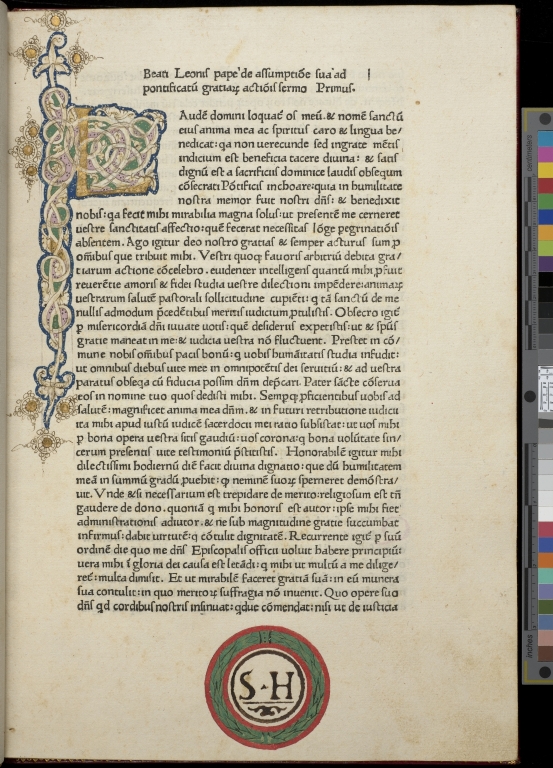 Beati Leonis pape de assumptiõe sua ad
pontificatũ gratiaꝝ actiõis sermo Primus.
LAudẽ domini loquat́ os meũ. & nomẽ sanctũ
eius anima mea ac spiritus caro & lingua be/
nedicat: q̃a non uerecunde sed ingrate mẽtis
indicium est beneficia tacere diuina: & satis
dignũ est a sacrificiis dominice laudis obsequm
cõsecrati Põtificis inchoare: quia in humilitate
nostra memor fuit nostri dñs: & benedixit
nobis: q̃a fecit mihi mirabilia magna solus: ut presentẽ me cerneret
uestre sanctitatis affectio: quẽ fecerat necessitas lõge pegrinatiõis
absentem. Ago igitur deo nostro gratias & semper acturus sum ꝓ
oĩbus que tribuit mihi. Vestri quoqꝫ fauoris arbitriũ debita gra/
tiarum actione cõcelebro. euidenter intelligens quantũ mihi ꝓsint
reuerẽtie amoris & fidei studia uestre dilectioni impẽdere: animaꝝ
uestrarum salutẽ pastorali sollicitudine cupiẽti: q tã sanctũ de me
nullis admodum p̃cedẽtibus meritis iudicium ꝓtulistis. Obsecro igit́
ꝑ misericordiã dñi iuuate uotis: quẽ desideriis expetistis: ut & sp̃us
gratie maneat in me: & iudicia uestra nõ fluctuent. Prestet in cõ/
mune nobis oĩbus pacis bonũ: q uobis hũanitatis studia infudit:
ut omnibus diebus uite mee in omnipotẽtis dei seruitiũ: & ad uestra
paratus obseqa cũ fiducia possim dñm dep̃cari. Pater sãcte cõserua
eos in nomine tuo quos dedisti mihi. Sempqꝫ ꝓficientibus uobis ad
salutẽ: magnificet anima mea dñm. & in futuri retributione iudicii
ita mihi apud iustũ iudicẽ sacerdotii mei ratio subsistat: ut uos mihi
ꝑ bona opera uestra sitis gaudiũ: uos corona: q bona uolũtate sin/
cerum presentis uite testimoniũ p̃stitistis. Honorabilẽ igitur mihi
dilectissimi hodiernũ diẽ facit diuina dignatio: que dũ humilitatem
meã in summũ gradũ ꝓuehit: q neminẽ suoꝝ sperneret demõstra/
uit. Vnde & si necessarium est trepidare de merito: religiosum est tñ
gaudere de dono. quoniã q mihi honoris est autor: ipse mihi fiet
administrationis adiutor. & ne sub magnitudine gratie succumbat
infirmus: dabit uirtutẽ: q cõtulit dignitatẽ. Recurrente igit́ ꝑ suũ
ordinẽ die quo me dñs Episcopalis officii uoluit habere principiũ:
uera mihi ĩ gloria dei causa est letãdi: q mihi ut multũ a me dilige/
ret́: multa dimisit. Et ut mirabilẽ faceret gratiã suã: in eũ munera
sua contulit: in quo meritoꝝ suffragia nõ inuenit. Quo opere suo
dñs qd cordibus nostris insinuat: qdue cõmendat: nisi ut de iusticia
S·H
centimetres
inches